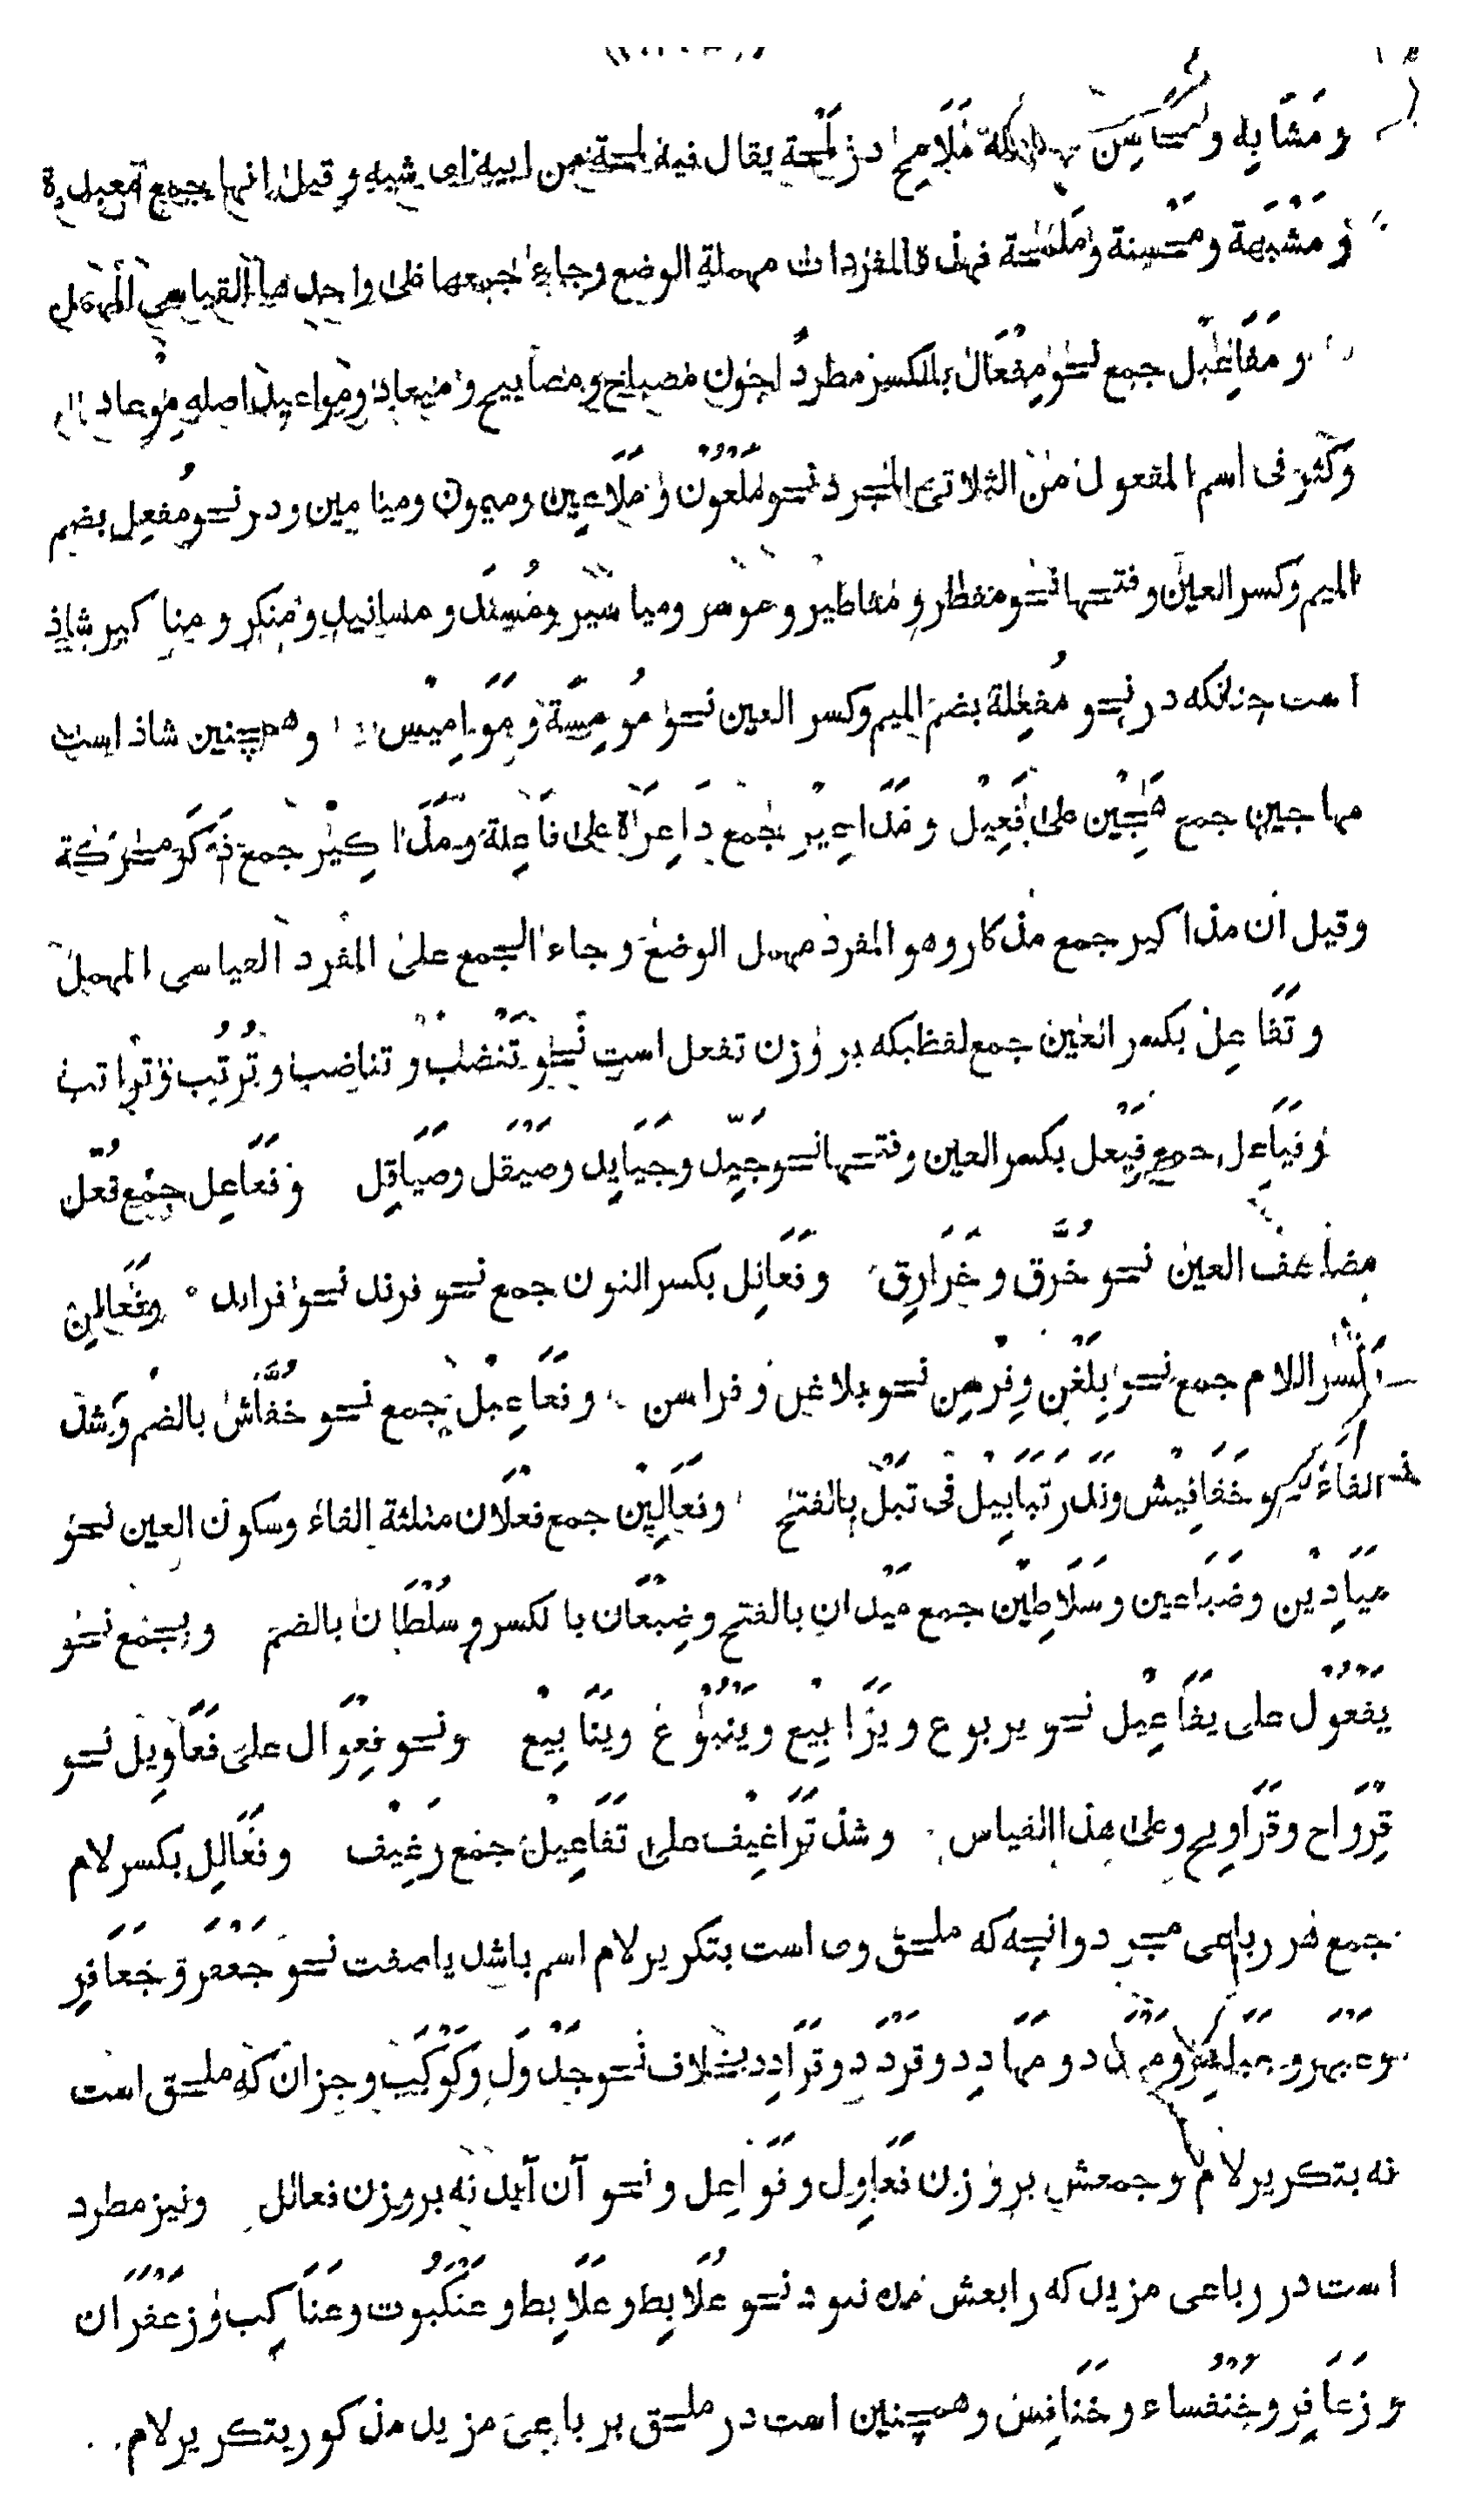 و مَشَابِه و محاسن ملامح در لمحة يقال فيه لمحة من ابيه اى شبه و قيل انها جمع
و مَشْبَهة و مَحْسنة و مَلْمَحة فهذه المفردات مهملة الوضع و جاء جمعها على واحدها القياسى المهمل
و مَفَاعِيل جمع نحو مِفْعَال بالكسر مطرد نحو مصباح و مصابيح و ميعاد و مواعيد اصله مِوْعاد
و كثر فى اسم المفعول من الثلاثى المجرد نحو مَلْعُون و مَلَاعِين و ميمون و ميامين و در نحو مُفعِل بضم
الميم و كسر العين و فتحها نحو مفطر و مفاطير و موسر و مياسير و مُسنَد و مسانيد و مُنكر و مناكير شاذ
است چنانكه در نحو مُفعِلة بضم الميم و كسر العين نحو مُومِسَة و مَوَامِيْس و همچنين شاذ است
مهاجين جمع هَجِيْن على فَعِيْل و مَدَاعِيْر جمع دَاعِرَة على فَاعِلة و مَذَاكِيْر جمع ذَكَر محركة
و قيل ان مذاكير جمع مذكار و هو المفرد مهمل الوضع و جاء الجمع على المفرد القياسى المهمل
و تَفَاعِل بكسر العين جمع لفظيكه بر وزن تفعل است نحو تَنْضُب و تناضب و تُرْتُب و تراتب
و فَيَاعِل جمع فَيْعل بكسر العين و فتحها نحو جَيِّد و جَيَايِد و صَيْقَل و صَيَاقِل و فَعَاعِل جمع فُعّل
مضاعف العين نحو خُرَّق و خَرَارِق و فَعَانِل بكسر النون جمع نحو فرند نحو فراند و فَعَالِن
بكسر اللام جمع نحو بِلَغْن و فِرْسِن نحو بلاغن و فراسن و فَعَاعِيْل جمع نحو خُفَّاش بالضم و شد
الفاء نحو خَفَافِيْش و ندر تَبَابِيْل فى تَبْل بالفتح و فَعَالِيْن جمع فعلان مثلثة الفاء و سكون العين نحو
مَيَادِيْن و ضَبَاعين و سَلَاطِيْن جمع مَيْدان بالفتح و ضِبْعَان بالكسر و سُلْطَان بالضم و يجمع نحو
يَفْعُوْل على يفَاعِيْل نحو يربوع و يَرَابِيْع و يَنْبُوْع و يَنَابِيْع و نحو فِعْوَال على فَعَاوِيل نحو
قِرْوَاح و قَرَاوِيح و على هذا القياس و شذ تَرَاغِيْف على تَفَاعِيْل جمع رَغِيْف و فَعَالِل بكسر لام
جمع هر رباعى مجرد و آنچه كه ملحق وى است بتكرير لام اسم باشد يا صفت نحو جَعْفَر و جَعَافِر
و مَهْدد و مَهَادِد و قَرْدَد و قَرَادِد بخلاف نحو جَدْوَل و كَوْكَب و جز ان كه ملحق است
نه بتكرير لام و جمعش بر وزن فَعَاوِل و فَوَاعِل و نحو آن آيد نه بر وزن فعالل و نيز مطرد
است در رباعى مزيد كه رابعش مده نبود نحو عُلَابِط و عَلَابِط و عَنْكَبُوت و عَنَاكِب و زَعْفَرَان
و زَعَافِر و خُنْفُساء و خَنَافِس و همچنين است در ملحق بر باعى مزيد مذكور بتكرير لام